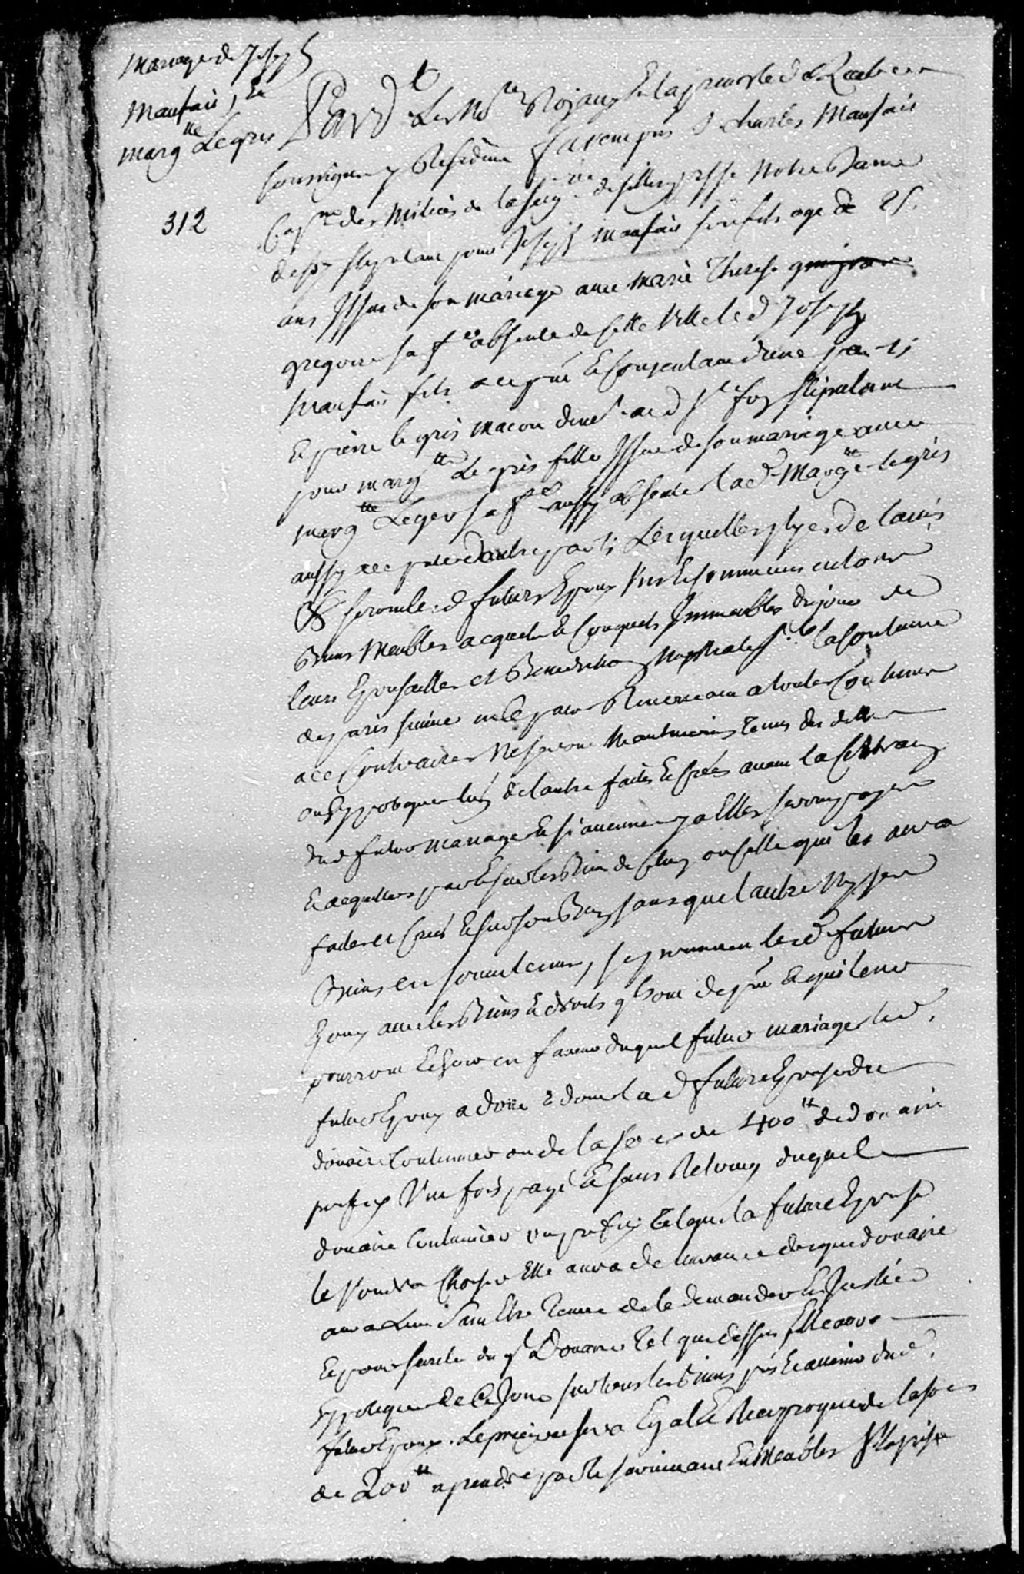 Mariage de Joseph
Maufait, Et
marg.tte Legris
312
Pard.t Les No.res Royaux En la prevosté de Quebec
soussignez y Residens furent pns S.r charles Maufait
Cap.ne des Milices de la seig.rie de sillery psse Notre Dame
de foy stipulant pour Joseph maufait son fils agé de 25.
ans Issu de son mariage avec marie Therese
gregoire sa f.e absente de cette Ville led. Joseph
Maufait fils a ce pnt Et Consentant d'une part
Et pierre le gris macon dem.t aud. S.te foy stipulant
pour marg.tte Le gris fille Issue de son mariage avec
marg.tte Leger sa f.e aussy absente lad. Marg.te legris
aussy a ce pnte d'autre part Lesquelles ptyes de l'avis
seront lesd. futurs Epoux Uns Et communs en tous
Biens Meubles acquets Et Conquets Immeubles du jour de
leurs Epousailles et Benediction Nuptialle la Coutume
de paris suivie en ce pays Renoncant a toutes Coutumes
a ce Contraires Ne seront Neantmoins tenus des dettes
ou Hypoteques l'un de l'autre faites Et Crées avant la
dud. futur mariage Et si aucunes y a Elles seront payées
Et acquittées par Et sur les Biens de celuy ou celle qui les aura
faites et Créés Et sur son Bien sans que l'autre Ny ses
Biens en soient tenus, se prennent lesd. futurs
Epoux avec les Biens Et droits qu'ils ont de pnt Et qui leur
pourront Echoir en faveur duquel futur mariage led.
futur Epoux a doüé Et doue lad. future Epouse du
doüaire Coutumier ou de la so.e de 400.tt de doüaire
prefix Une fois payé Et sans Retour duquel
douaire Coutumier ou prefix tel que la future Epouse
le voudra Choisir Elle aura delivrance desque douaire
aura Lieu sans Etre Tenue de le demander En Justice
Et pour sureté du q.l Douaire tel que dessus Elle aura
hypoteque de Ce Jour sur tous les Biens pnts Et avenir dud.
futur Epoux. Le preciput sera Egal Et Reciproque de la so.e
de 200.tt a prendre par le survivant En Meubles